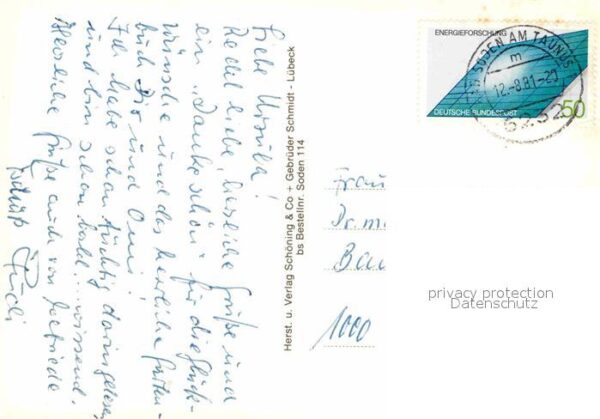 Liebe Ursula!
Recht liebe, herzliche Grüße und
ein "Dankeschön" für die Glück-
wünsche und das herrliche
buch Dir und Omi!
Ich habe schon tüchtig darin gelesen
und bin schon bald ... wissend.
Herzliche Grüße auch von
Tschüß
Herst. u. Verlag Schöning & Co + Gebrüder Schmidt - Lübeck
bs Bestellnr. Soden 114
ENERGIEFORSCHUNG
DEUTSCHE BUNDESPOST
50
SODEN AM TAUNUS
m
12.-8.81-2
6232
Frau
Dr. m
Bau
1000
privacy protection
Datenschutz